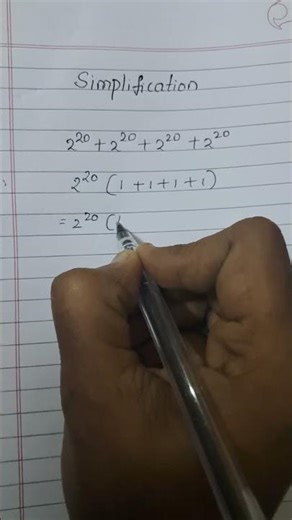 Simplification
2²⁰ + 2²⁰ + 2²⁰ + 2²⁰
2²⁰ (1 + 1 + 1 + 1)
= 2²⁰ (